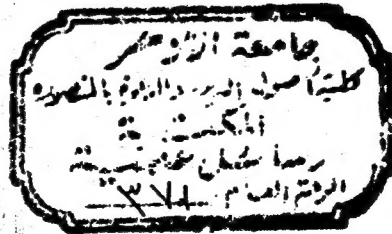 جامعة الأزهر
كلية أصول الدين والدعوة بالمنصورة
المكتبة
الرقم العام ٣٧١